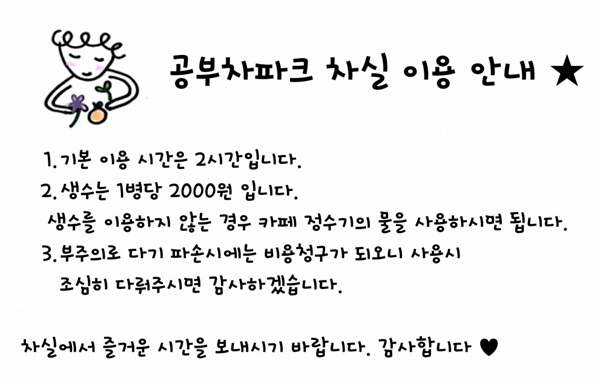 공부차파크 차실 이용 안내 ★
1. 기본 이용 시간은 2시간입니다.
2. 생수는 1병당 2000원 입니다.
생수를 이용하지 않는 경우 카페 정수기의 물을 사용하시면 됩니다.
3. 부주의로 다기 파손시에는 비용청구가 되오니 사용시
조심히 다뤄주시면 감사하겠습니다.
차실에서 즐거운 시간을 보내시기 바랍니다. 감사합니다 ♥